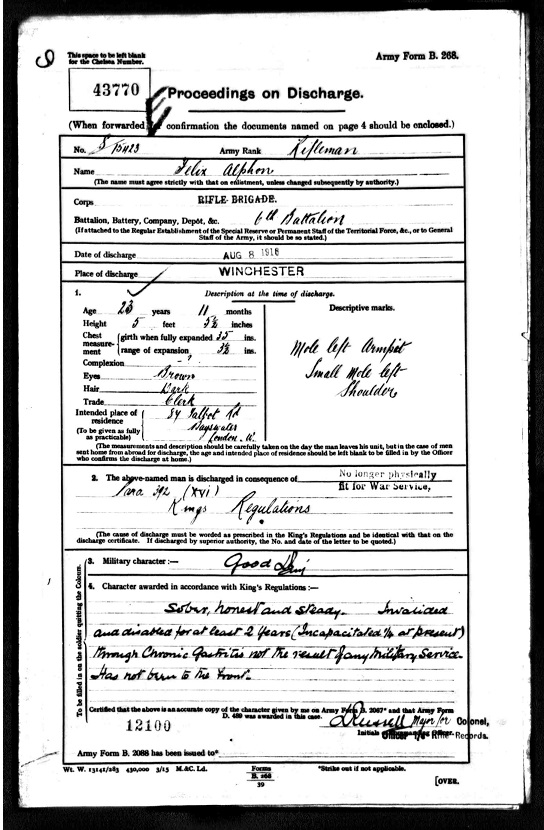 This space to be left blank
for the Chelsea Number.
Army Form B. 268.
43770
Proceedings on Discharge.
(When forwarded confirmation the documents named on page 4 should be enclosed.)
No. S/15423 Army Rank Rifleman
Name Felix Alphon
(The name must agree strictly with that on enlistment, unless changed subsequently by authority.)
Corps RIFLE BRIGADE.
Battalion, Battery, Company, Depôt, &c. 6th Battalion
(If attached to the Regular Establishment of the Special Reserve or Permanent Staff of the Territorial Force, &c., or to General
Staff of the Army, it should be so stated.)
Date of discharge AUG 8 1916
Place of discharge WINCHESTER
1. Description at the time of discharge.
Age 23 years 11 months
Height 5 feet 5½ inches
Chest measurement { girth when fully expanded 35 ins.
range of expansion 3½ ins.
Complexion - ? -
Eyes Brown
Hair Dark
Trade Clerk
Intended place of residence 84 Talbot Rd
(To be given as fully as practicable) Bayswater
London. W.
Descriptive marks.
Mole left Armpit
Small mole left
Shoulder
(The measurements and description should be carefully taken on the day the man leaves his unit, but in the case of men
sent home from abroad for discharge, the age and intended place of residence should be left blank to be filled in by the Officer
who confirms the discharge at home.)
2. The above-named man is discharged in consequence of No longer physically
fit for War Service,
Para 392 (XVI)
Kings Regulations
(The cause of discharge must be worded as prescribed in the King's Regulations and be identical with that on the
discharge certificate. If discharged by superior authority, the No. and date of the letter to be quoted.)
To be filled in on the soldier quitting the Colours.
3. Military character :— Good
4. Character awarded in accordance with King's Regulations :—
Sober, honest and steady. Invalided
and disabled for at least 2 years (Incapacitated at present)
through Chronic Gastritis not the result of any Military Service.
Has not been to the Front.
Certified that the above is an accurate copy of the character given by me on Army Form B. 2067* and that Army Form
D. 489 was awarded in this case.
12100
Russell Major for Colonel,
Initials of
Officer i/c Rifle Records.
Army Form B. 2088 has been issued to*
Wt. W. 13141/283 430,000 3/15 M.&C. Ld. Forms
B. 268
39
*Strike out if not applicable.
[OVER.